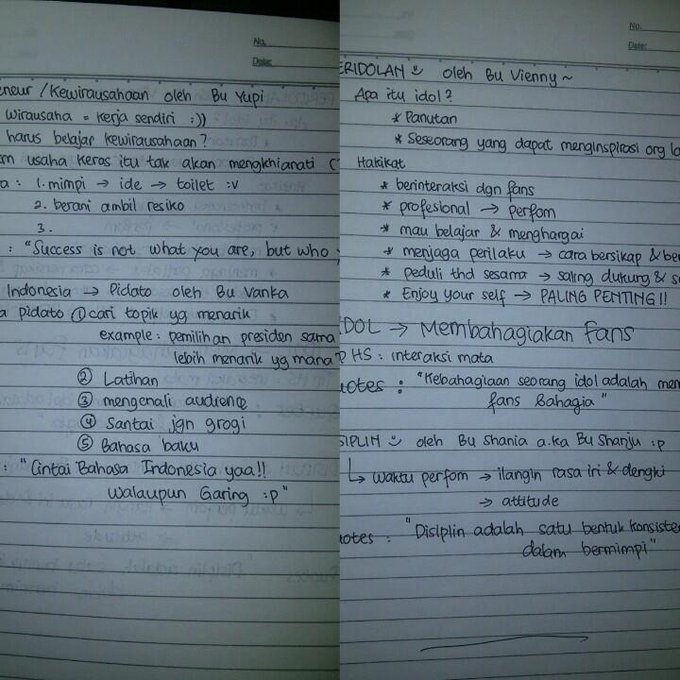 No.
Date:
eneur / Kewirausahaan oleh Bu Yupi
wirausaha = kerja sendiri :))
harus belajar kewirausahaan?
am usaha keras itu tak akan mengkhianati
a : 1. mimpi → ide → toilet :v
2. berani ambil resiko
3.
: "Success is not what you are, but who
Indonesia → Pidato oleh Bu Vanka
a pidato ① cari topik yg menarik
example : pemilihan presiden sama
lebih menarik yg mana
② Latihan
③ mengenali audience
④ Santai jgn grogi
⑤ Bahasa baku
: "Cintai Bahasa Indonesia yaa!!
walaupun Garing :p"
No.
Date:
ERIDOLAN oleh Bu Vienny ~
Apa itu idol?
* Panutan
* Seseorang yang dapat menginspirasi org la
Hakikat
* berinteraksi dgn fans
* profesional → perfom
* mau belajar & menghargai
* menjaga perilaku → cara bersikap & ber
* peduli thd sesama → saling dukung & s
* Enjoy your self → PALING PENTING!!
IDOL → Membahagiakan fans
HS : interaksi mata
uotes : "Kebahagiaan seorang idol adalah mem
fans Bahagia"
ISIPLIN oleh Bu Shania a.ka Bu Shanju :p
↳ waktu perfom → ilangin rasa iri & dengki
→ attitude
uotes : "Disiplin adalah satu bentuk konsiste
dalam bermimpi"